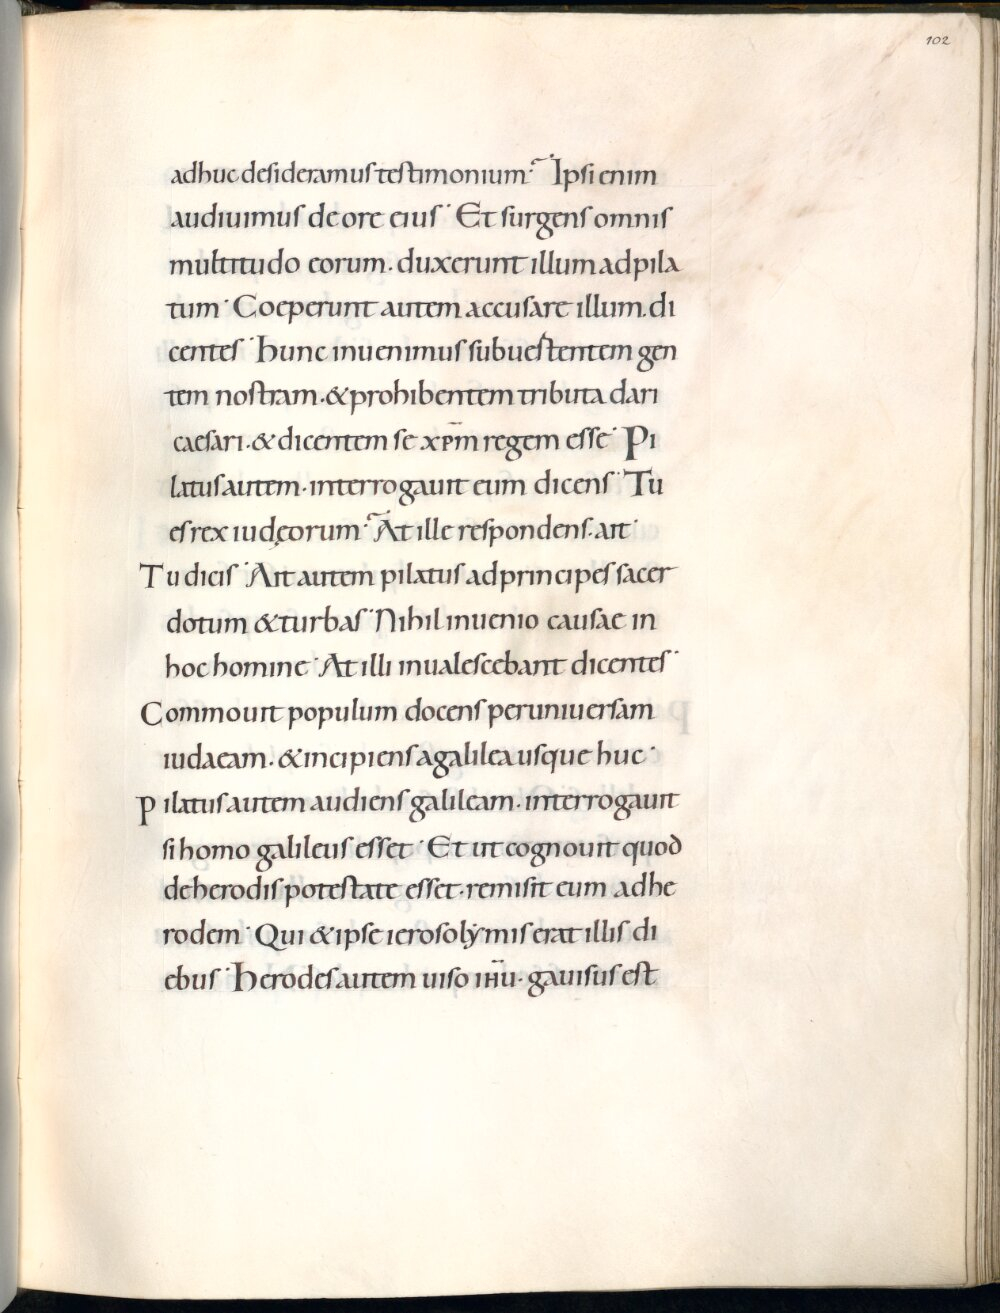 102
adhuc desideramus testimonium· Ipsi enim
audiuimus de ore eius· Et surgens omnis
multitudo eorum· duxerunt illum ad pila
tum· Coeperunt autem accusare illum· di
centes· hunc inuenimus subuestentem gen
tem nostram· & prohibentem tributa dari
caesari· & dicentem se xp̄m regem esse· Pi
latus autem· interrogauit eum dicens· Tu
es rex iudęorum· At ille respondens· ait·
Tu dicis· Ait autem pilatus ad principes sacer
dotum & turbas· Nihil inuenio causae in
hoc homine· At illi inualescebant dicentes·
Commouit populum docens per uniuersam
iudaeam· & incipiens a galilea usque huc·
Pilatus autem audiens galileam· interrogauit
si homo galileus esset· Et ut cognouit quod
de herodis potestate esset· remisit eum ad he
rodem· Qui & ipse ierosolẏmis erat illis di
ebus· Herodes autem uiso ih̄u· gauisus est